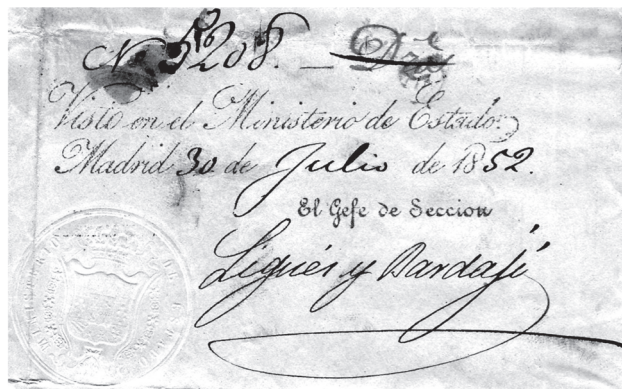 Nº 5208.
Visto en el Ministerio de Estado
Madrid 30 de Julio de 1852.
El Gefe de Seccion
Ligués y Bardají